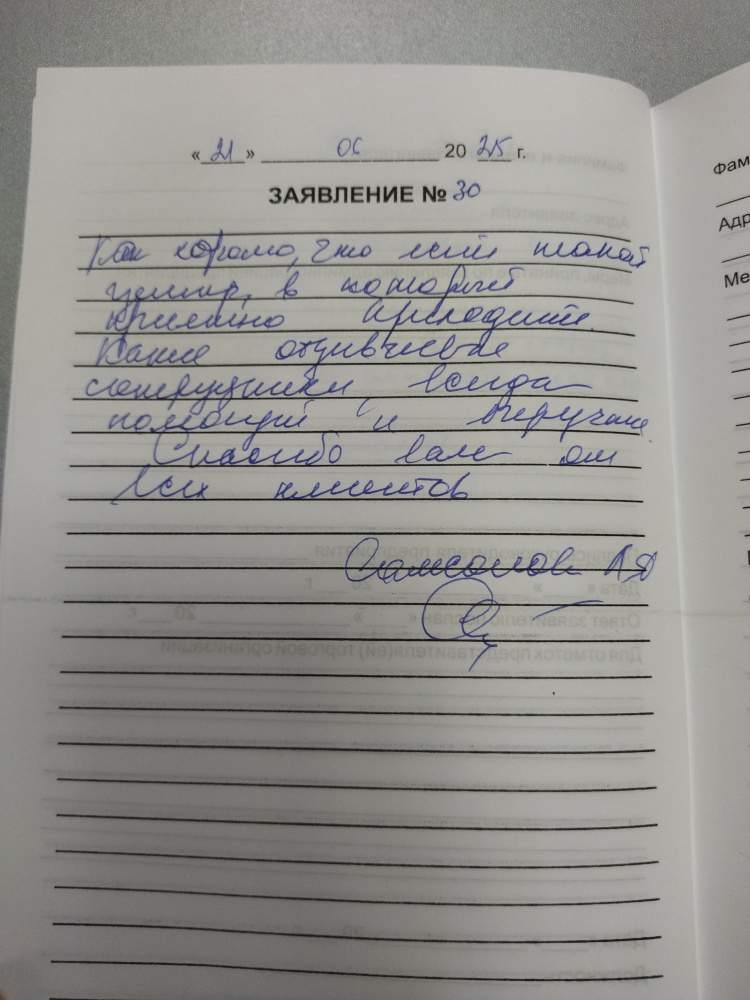 «21» 06 2025 г.
ЗАЯВЛЕНИЕ № 30
Как хорошо, что есть такой
центр, в который
приятно приходить.
Какие отзывчивые
сотрудники, всегда
помогут и выручат
Спасибо вам от
всех клиентов
Самсонов
Фам
Адр
Ме